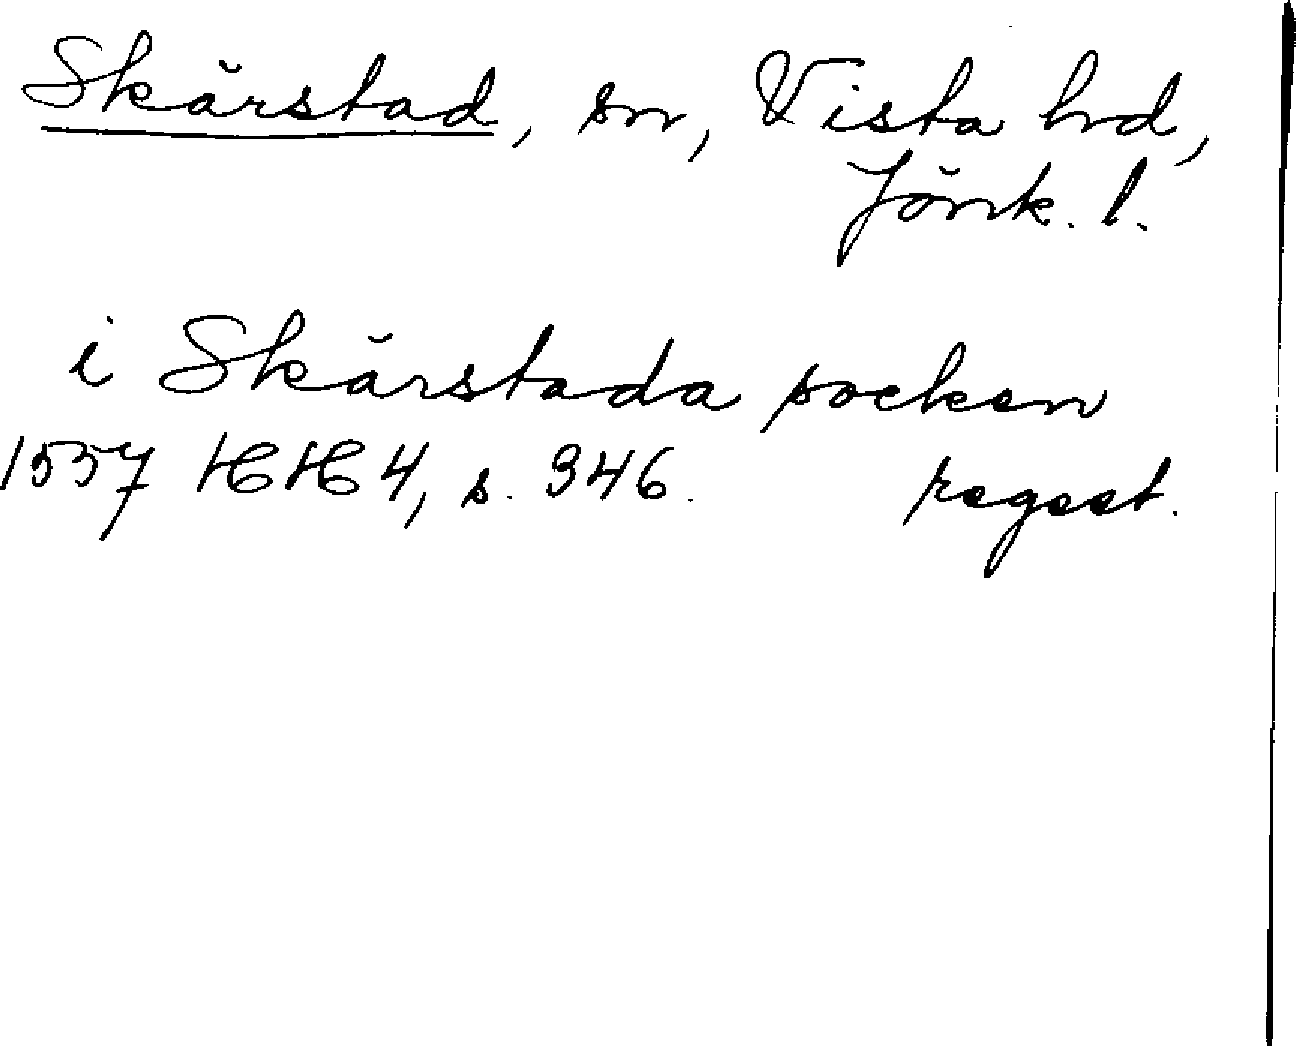 Skärstad, sn, Vista hrd,
Jönk. l.
i Skärstada socken
1557 HH 4, s. 346.  regest.